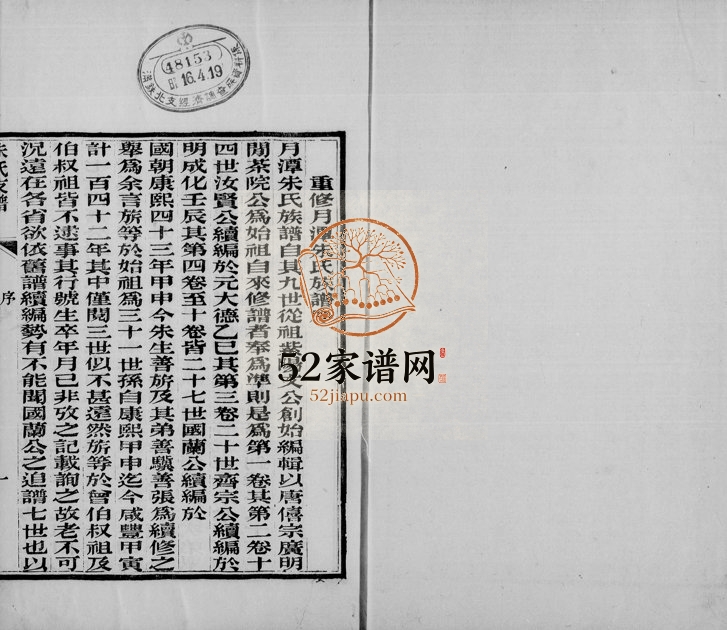 48153
昭 16.4.19
重修月潭朱氏族譜
月潭朱氏族譜自其九世從祖紫陽公創始編輯以唐僖宗廣明
閒茶院公爲始祖自來修譜者奉爲準則是爲第一卷其第二卷十
四世汝賢公續編於元大德乙巳其第三卷二十世齊宗公續編於
明成化壬辰其第四卷至十卷皆二十七世國蘭公續編於
國朝康熙四十三年甲申今朱生善旂及其弟善驥善張爲續修之
舉爲余言旂等於始祖爲三十一世孫自康熙甲申迄今咸豐甲寅
計一百四十二年其中僅閱三世似不甚遠然旂等於曾伯叔祖及
伯叔祖皆不逮事其行號生卒年月已非攷之記載詢之故老不可
況遠在各省欲依舊譜續編勢有不能聞國蘭公之追譜七世也以
朱氏支譜
序
一
52家谱网
52jiapu.com